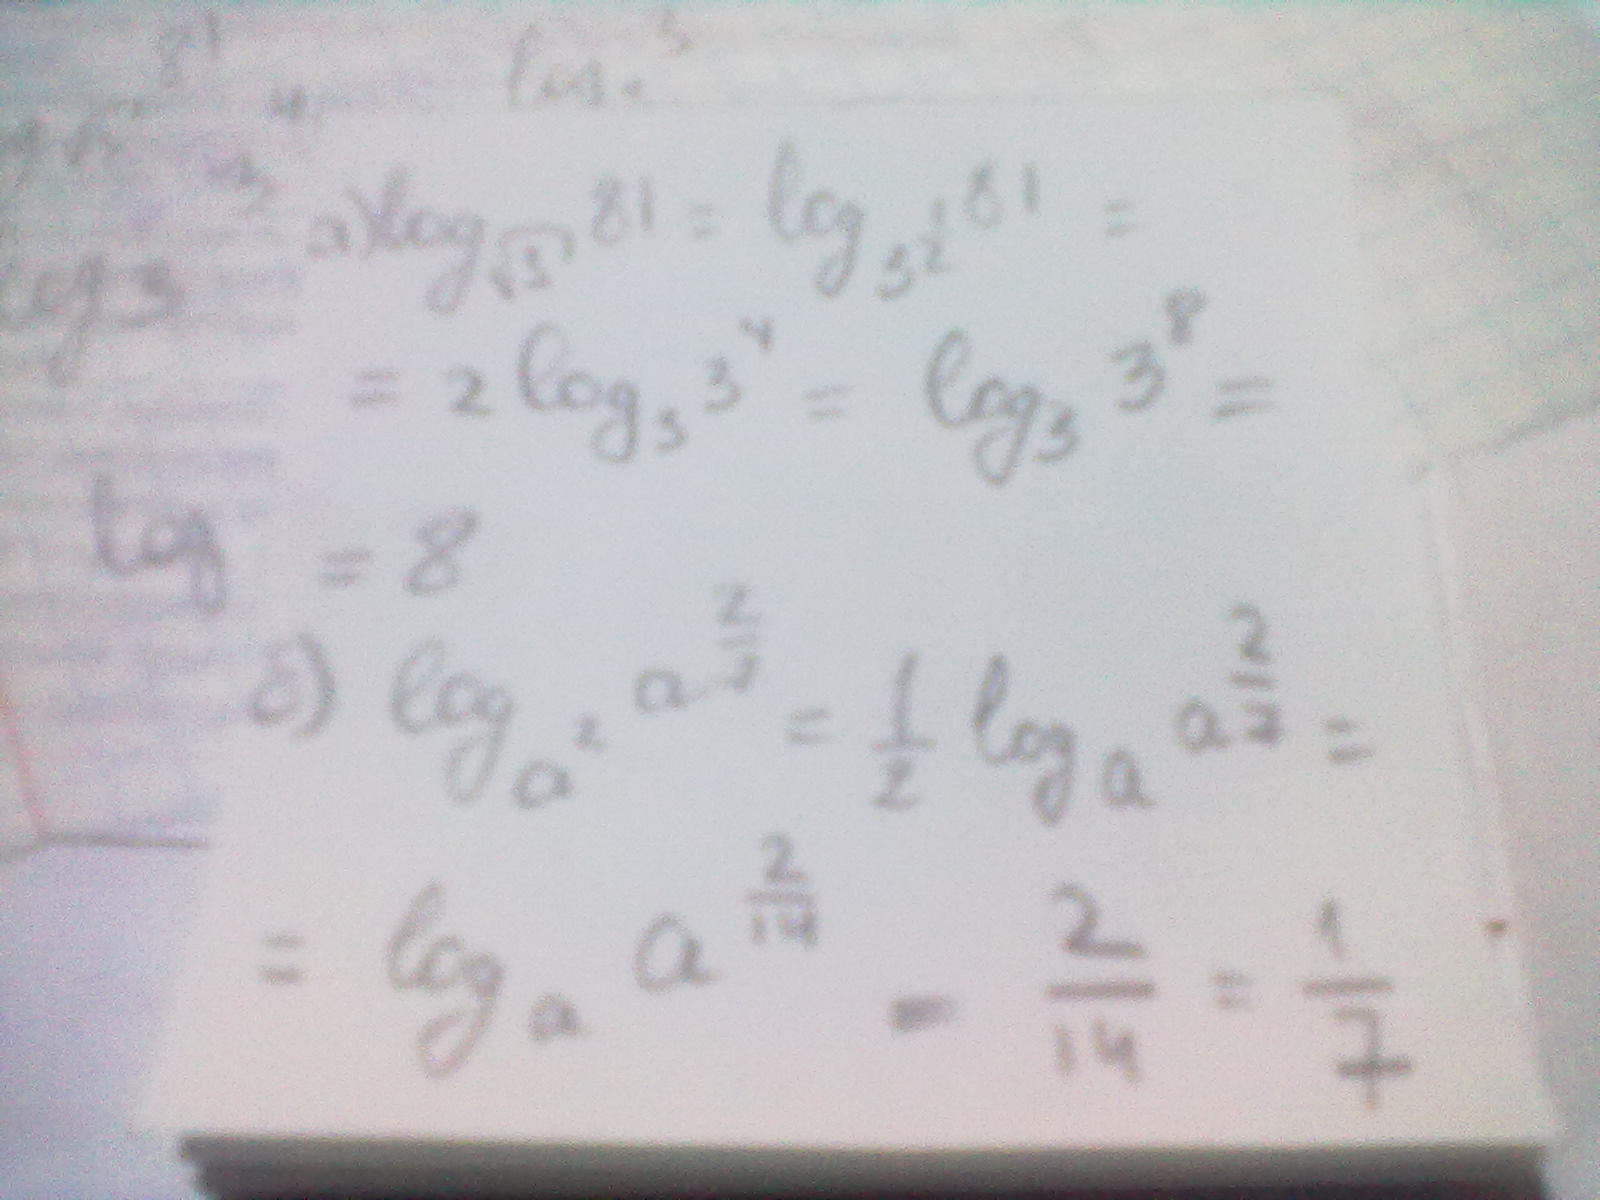 81
log₃
а) log_{√3} 81 = log_{3^{1/2}} 81 =
= 2 log₃ 3⁴ = log₃ 3⁸ =
log
= 8
б) log_{a²} a^{2/7} = 1/2 log_a a^{2/7} =
= log_a a^{2/14} = 2/14 = 1/7